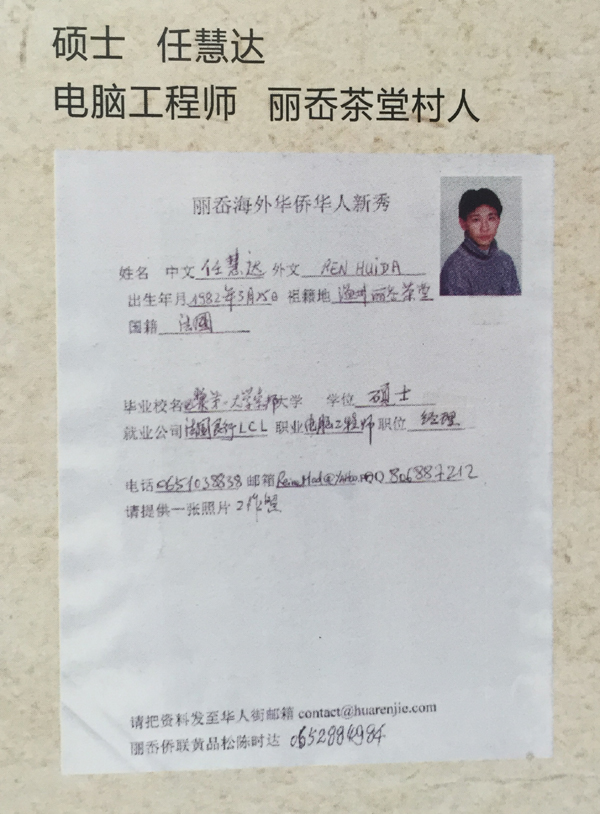 硕士 任慧达
电脑工程师 丽岙茶堂村人
丽岙海外华侨华人新秀
姓名 中文 任慧达 外文 REN HUIDA
出生年月 1982年5月25日 祖籍地 温州丽岙茶堂
国籍 法國
毕业校名 巴黎第一大学 大学 学位 硕士
就业公司 法国 银行LCL 职业 电脑工程师 职位 经理
电话 0651038838 邮箱 QQ 806887212
请提供一张照片 工作照
请把资料发至华人街邮箱 contact@huarenjie.com
丽岙侨联黄品松陈时达 0652884984